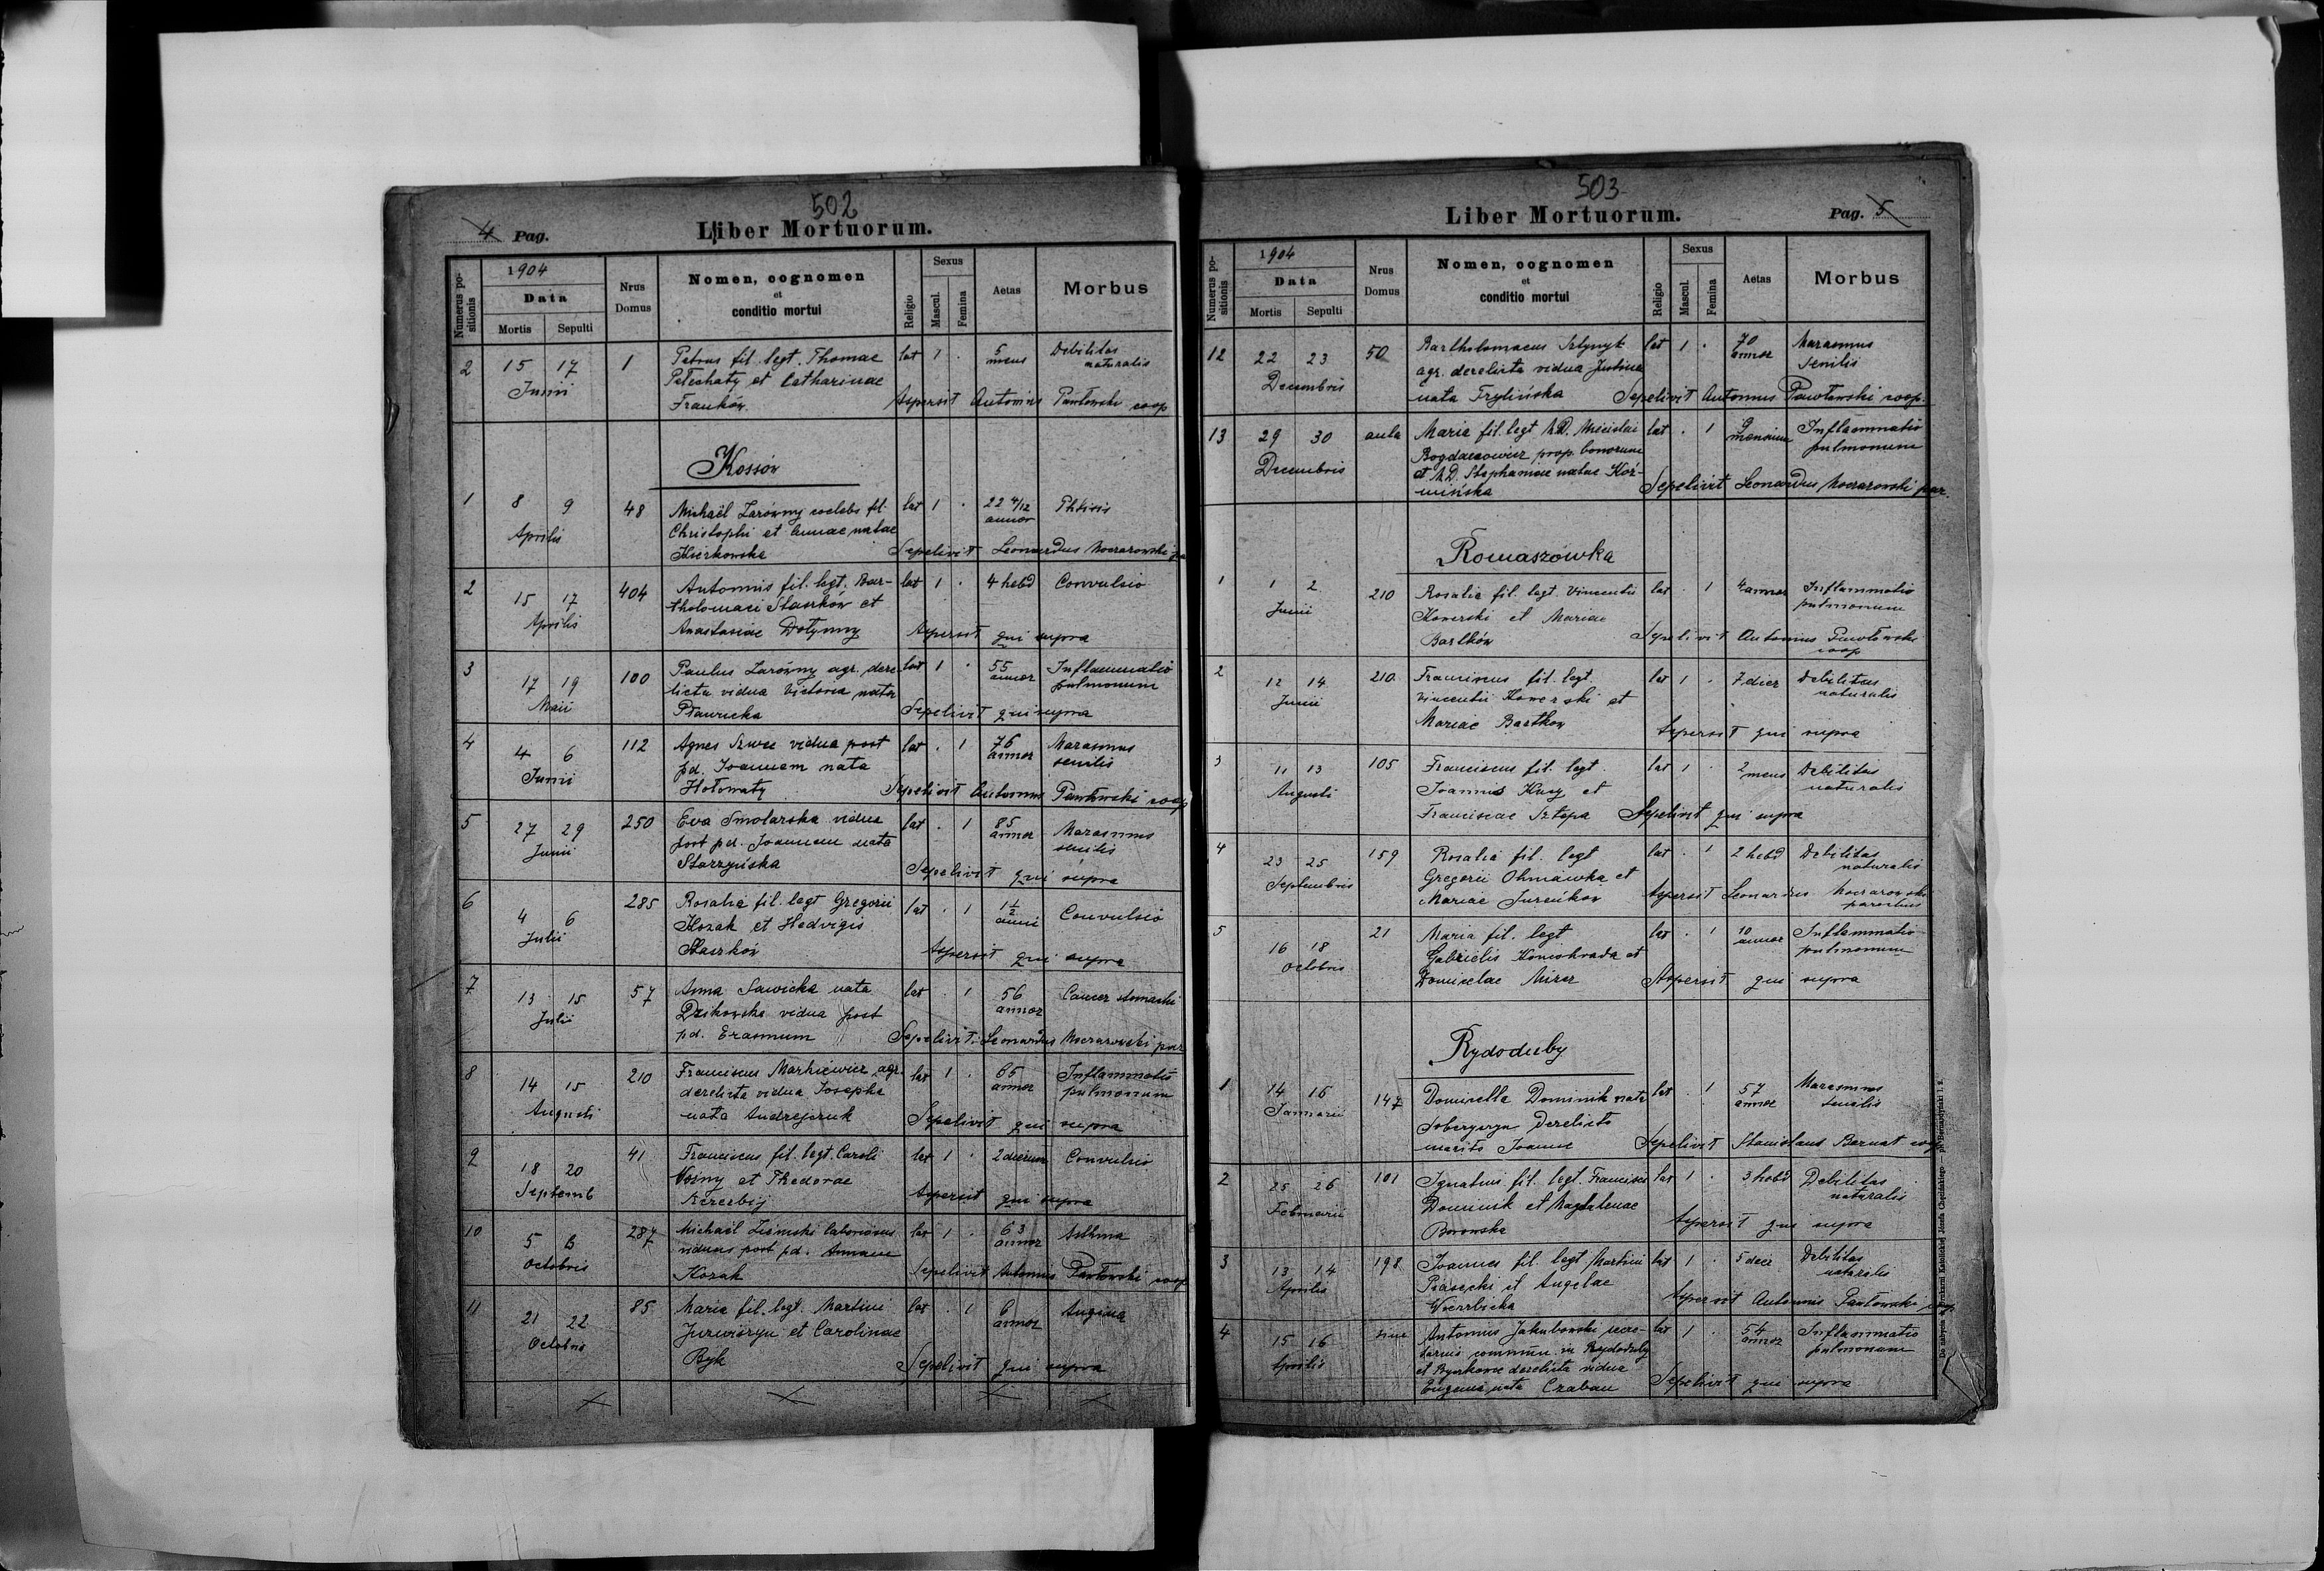 502
4 Pag.
Liber Mortuorum.
Numerus positionis
1904
Data
Mortis Sepulti
Nrus Domus
Nomen, cognomen
et
conditio mortui
Religio
Sexus
Mascul. Femina
Aetas
Morbus
2 15 17 1 Petrus fil. legt. Thomae lat 1 . 5 mens Debilitas naturalis
Junii et Catharinae
Franków Aspersit Antonius Pawłowski coop
Kossów
1 8 9 48 Michaël Zarówny coelebs fil. lat 1 . 22 4/12 annor Phtisis
Aprilis Christophi et Annae natae
Sepelivit Leonardus
2 15 17 404 Antonius fil. legt. Bar- lat 1 . 4 hebd Convulsio
Aprilis tholomaei Staszków et
Anastasiae Dołynny Aspersit qui supra
3 17 19 100 Paulus Zarówny agr. dere- lat 1 . 55 annor Inflammatio pulmonum
Maii licta vidua Victoria nata
Sepelivit qui supra
4 4 6 112 Agnes Szwec vidua post lat . 1 76 annor Marasmus senilis
Junii pd. Joannem nata
Hołowaty Sepelivit Antonius Pawłowski coop
5 27 29 250 Eva Smolarska vidua lat . 1 85 annor Marasmus senilis
Junii post pd. Joannem nata
Starzyńska Sepelivit qui supra
6 4 6 285 Rosalia fil. legt Gregorii lat . 1 1 1/2 anni Convulsio
Julii Kozak et Hedvigis
Staszków Aspersit qui supra
7 13 15 57 Anna Sawicka nata lat . 1 56 annor Cancer stomachi
Julii Dzikowska vidua post
pd. Erasmum Sepelivit Leonardus
8 14 15 210 Franciscus Markiewicz agr. lat 1 . 65 annor Inflammatio pulmonum
Augusti derelicta vidua Josepha
nata Andrejczuk Sepelivit qui supra
9 18 20 41 Franciscus fil. legt. Caroli lat 1 . 2 dierum Convulsio
Septemb Woźny et Thedorae
Aspersit qui supra
10 5 6 287 Michaël laboriosus lat 1 . 63 annor Asthma
Octobris viduus post pd. Annam
Kozak Sepelivit Antonius Pawłowski coop
11 21 22 85 Maria fil. legt. Martini lat . 1 6 annor Angina
Octobris et Carolinae
Byk Sepelivit qui supra
503
Liber Mortuorum.
Pag. 5
Numerus positionis
1904
Data
Mortis Sepulti
Nrus Domus
Nomen, cognomen
et
conditio mortui
Religio
Sexus
Mascul. Femina
Aetas
Morbus
12 22 23 50 Bartholomaeus lat 1 . 70 annor Marasmus senilis
Decembris agr. derelicta vidua Justina
nata Trylińska Sepelivit Antonius Pawłowski coop.
13 29 30 aula Maria fil. legt M.D. lat . 1 9 mensium Inflammatio pulmonum
Decembris Bogdanowicz prop. bonorum
et M.D. Stephaniae natae Koź-
mińska Sepelivit Leonardus par.
Romaszówka
1 1 2 210 Rosalia fil. legt. Vincentii lat . 1 4 annor Inflammatio pulmonum
Junii Konerski et Mariae
Bartków Sepelivit Antonius Pawłowski coop
2 12 14 210 Franciscus fil. legt. lat 1 . 7 dier Debilitas naturalis
Junii Vincentii Konerski et
Mariae Bartkow Aspersit qui supra
3 11 13 105 Franciscus fil. legt. lat 1 . 2 mens Debilitas naturalis
Augusti Joannis et
Franciscae Sztepa Sepelivit qui supra
4 23 25 159 Rosalia fil. legt lat . 1 2 hebd Debilitas naturalis
Septembris Gregorii et
Mariae Aspersit Leonardus parochus
5 16 18 21 Maria fil. legt lat . 1 10 annor Inflammatio pulmonum
Octobris Gabrielis et
Domicelae Aspersit qui supra
Rydoduby
1 14 16 147 Domicella Dominik nata lat . 1 57 annor Marasmus senilis
Januarii derelicto
marito Joanne Sepelivit Stanislaus Bernat coop
2 25 26 101 Ignatius fil. legt. Francisci lat 1 . 3 hebd Debilitas naturalis
Februarii Dominik et Magdalenae
Borowska Aspersit qui supra
3 13 14 198 Joannes fil. legt Martini lat 1 . 5 dier Debilitas naturalis
Aprilis Piasecki et Angelae
Wierzbicka Aspersit Antonius Pawłowski coop.
4 15 16 sine Antonius Jakubowski secre- lat 1 . 54 annor Inflammatio pulmonum
Aprilis tarius commun. in Rydoduby
et derelicta vidua
Eugenia nata Czaban Sepelivit qui supra